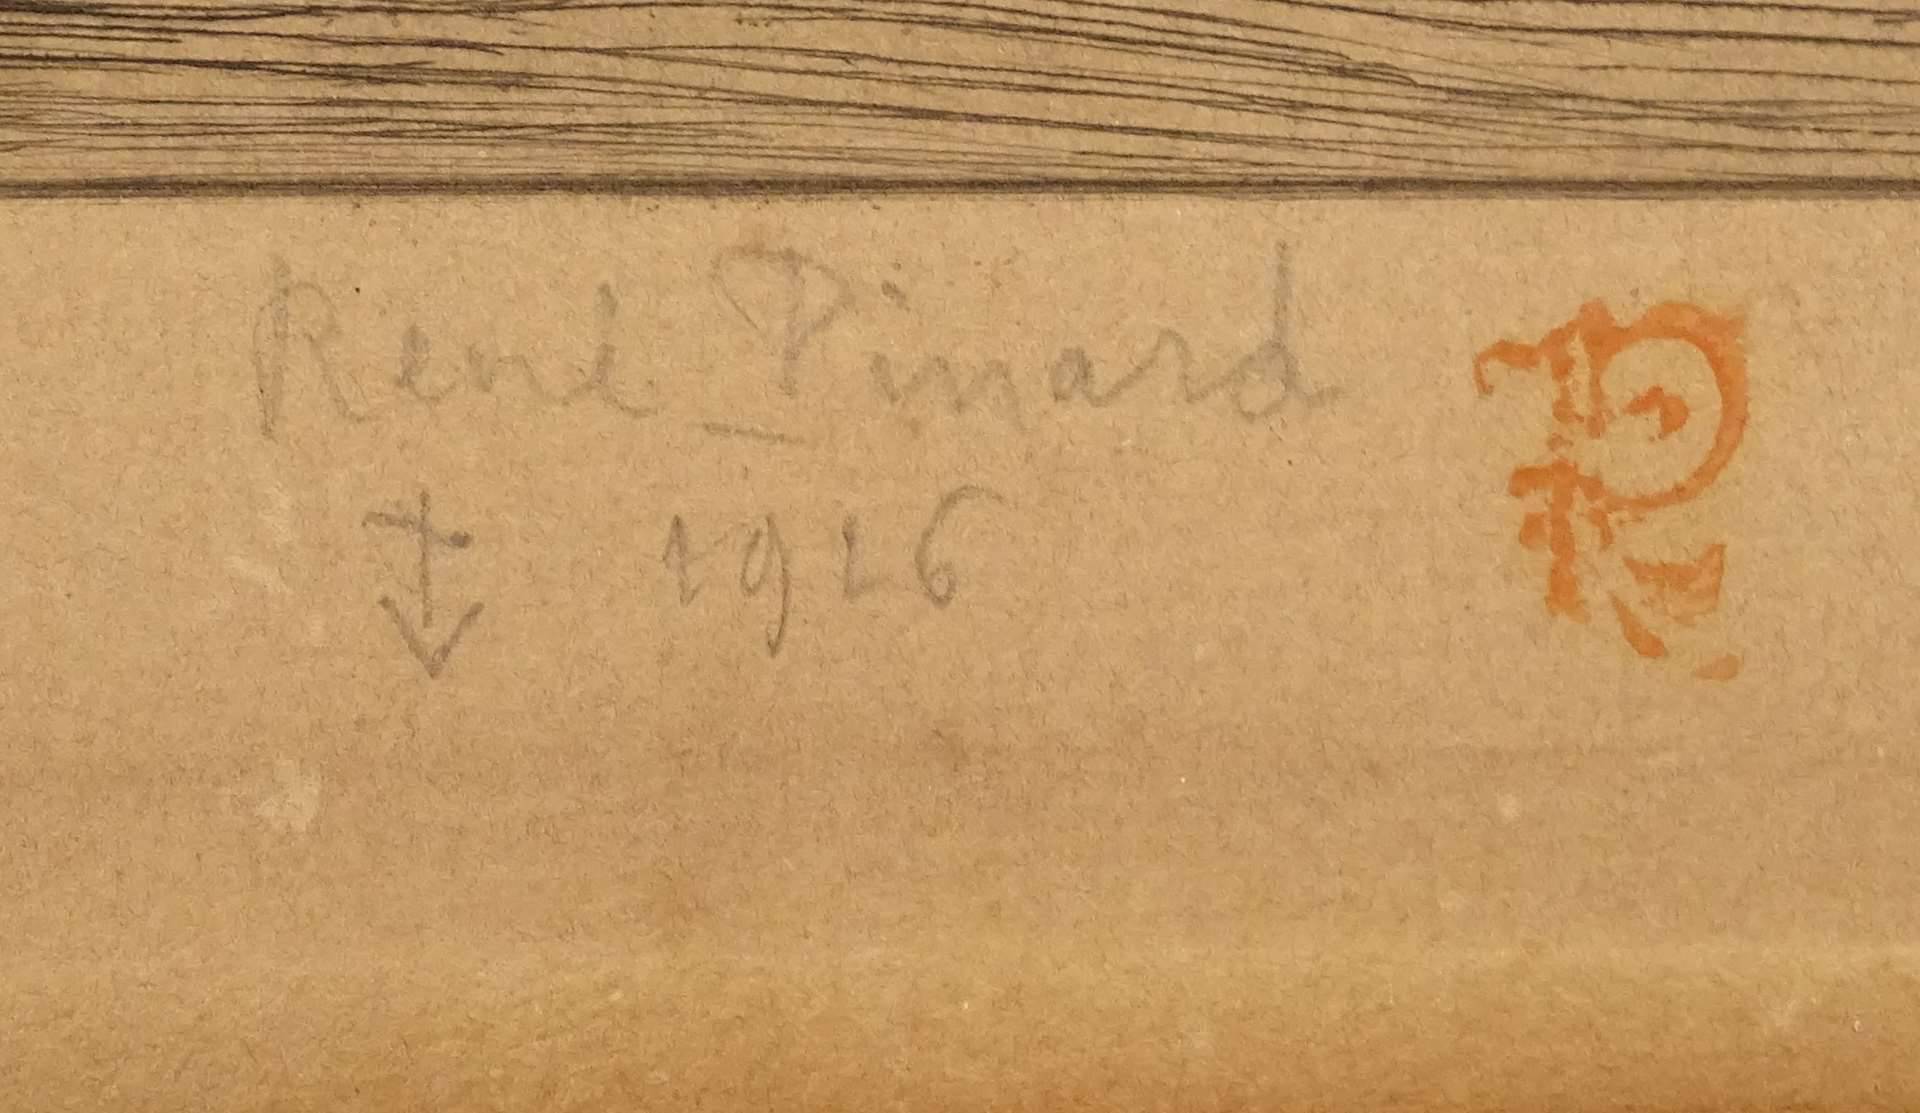 René Pinard
1926